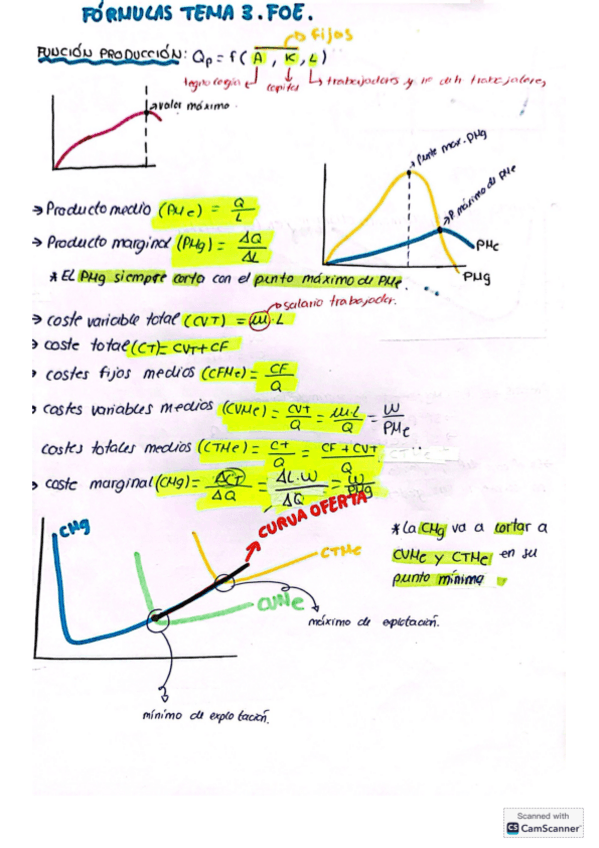 FÓRMULAS TEMA 3. FOE.
fijos
FUNCIÓN PRODUCCIÓN: Qp = f(A, K, L)
tegnología capital trabajadores y nº de h trabajadores
valor máximo
Punto max. PMg
P máximo de PMe
PMe
PMg
→ Producto medio (PMe) = Q/L
→ Producto marginal (PMg) = ΔQ/ΔL
* EL PMg siempre corta con el punto máximo de PMe.
salario trabajador.
→ coste variable total (CVT) = w·L
→ coste total (CT) = CVT + CF
costes fijos medios (CFMe) = CF/Q
costes variables medios (CVMe) = CVT/Q = w·L/Q = W/PMe
costes totales medios (CTMe) = CT/Q = CF + CVT/Q
coste marginal (CMg) = ΔCT/ΔQ = ΔL·W/ΔQ = W/PMg
CMg
CURVA OFERTA
CTMe
CVMe
* La CMg va a cortar a
CVMe y CTMe en su
punto mínimo
máximo de explotación.
mínimo de explotación.
Scanned with
CS CamScanner